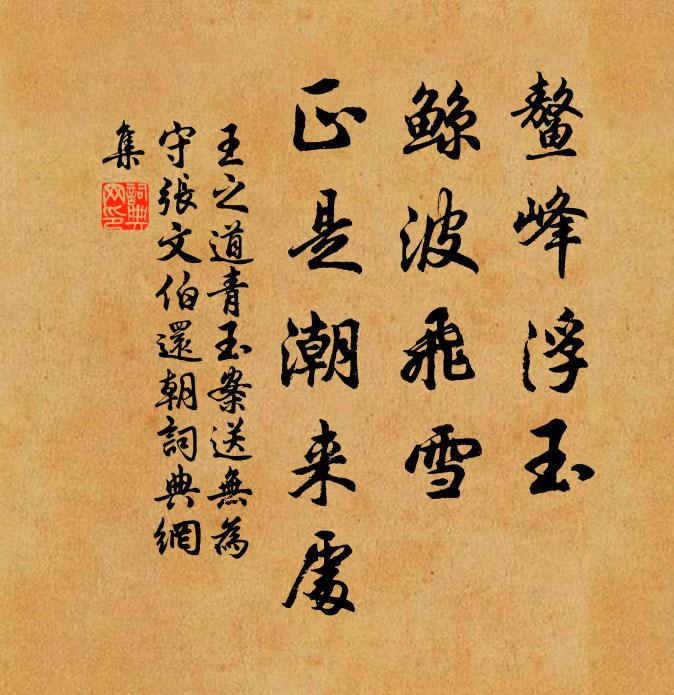 鳌峰浮玉
鲸波飛雪
正是潮来處
王之道青玉案送無為
守張文伯還朝詞典網
集
詞典
网印